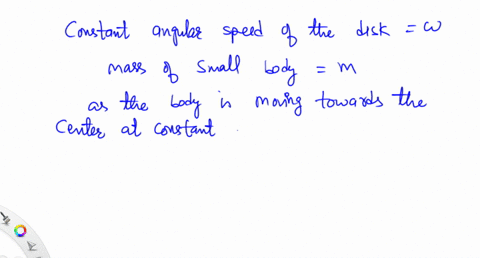 Constant angular speed of the disk = ω
mass of small body = m
as the body is moving towards the
Center at constant